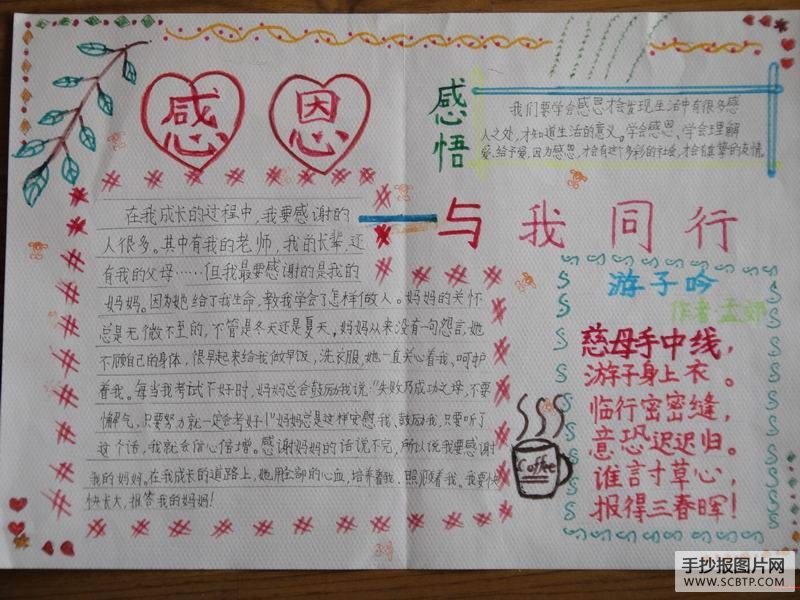 感恩
与我同行
在我成长的过程中,我要感谢的
人很多。其中有我的老师,我的长辈,还
有我的父母……但我最要感谢的是我的
妈妈。因为她给了我生命,教我学会了怎样做人。妈妈的关怀
总是无微不至的,不管是冬天还是夏天,妈妈从来没有一句怨言,她
不顾自己的身体,很早起来给我做早饭,洗衣服,她一直关心着我、呵护
着我。每当我考试不好时,妈妈总会鼓励我说:"失败乃成功之母,不要
懈气,只要努力就一定会考好!"妈妈总是这样安慰我、鼓励我,只要听了
这个话,我就会信心倍增。感谢妈妈的话说不完,所以说我要感谢
我的妈妈。在我成长的道路上,她用全部的心血,培养着我、照顾着我。我要快
快长大,报答我的妈妈!
感悟
我们要学会感恩才会发现生活中有很多感
人之处,才知道生活的意义。学会感恩、学会理解
爱、给予爱,因为感恩,才会有这个多彩的社会,才会有真挚的友情。
游子吟
作者:孟郊
慈母手中线,
游子身上衣。
临行密密缝,
意恐迟迟归。
谁言寸草心,
报得三春晖!
Coffee
手抄报图片网
WWW.SCBTP.COM